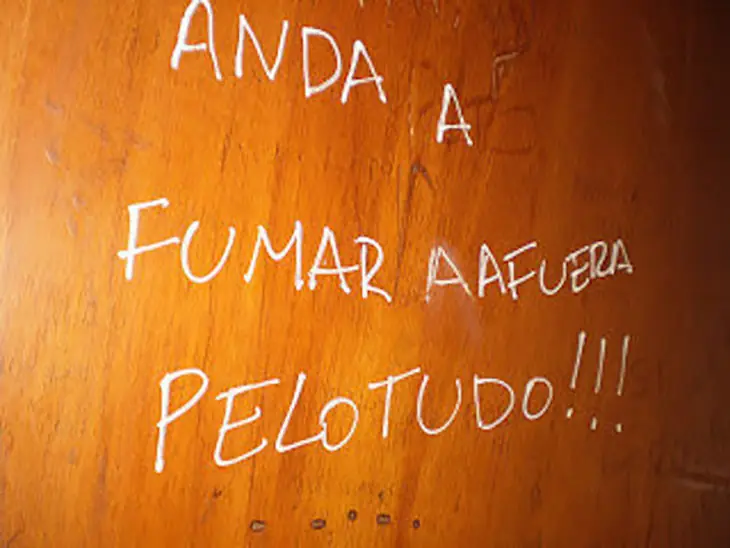 ANDA A
FUMAR AAFUERA
PELOTUDO!!!